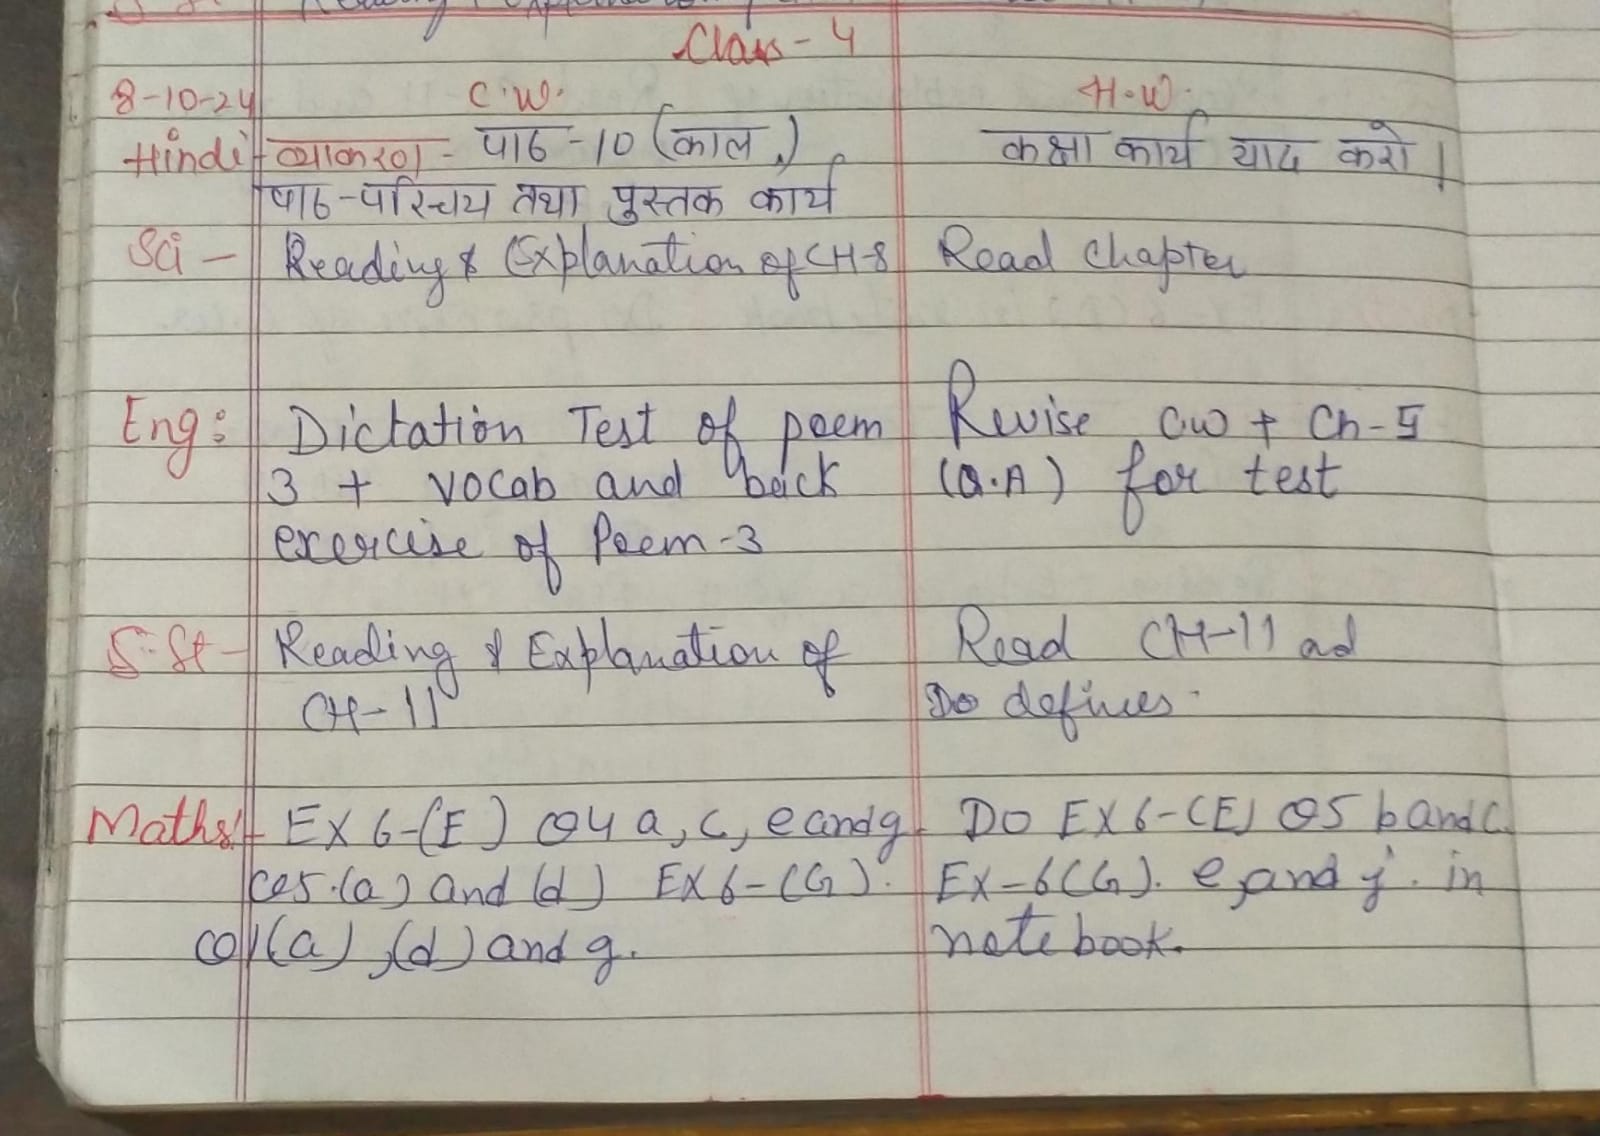 Class - 4
8-10-24 C.W. H.W.
Hindi - व्याकरण - पाठ -10 (काल) कक्षा कार्य याद करो।
पाठ-परिचय तथा पुस्तक कार्य
Sci - Reading & Explanation of CH-8 Read chapter
Eng: Dictation Test of poem Revise CW + Ch-5
3 + vocab and back (Q.A) for test
exercise of Poem-3
S.St - Reading & Explanation of Read CH-11 ad
CH-11 Do defines.
Maths:- EX 6-(E) Q4 a, c, e and g Do EX 6-(E) Q5 b and c.
Q5.(a) and (d) EX 6-(G). EX-6(G). e, and j. in
Q1(a), (d) and g. notebook.